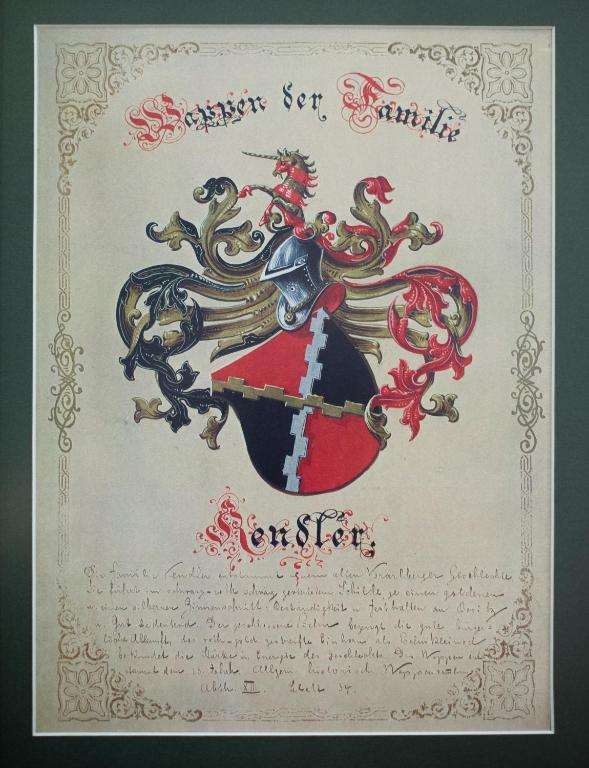 Wappen der Familie
Kendler:
Die Familie Kendler entstammt einem alten Vorarlberger Geschlechte
Sie führt im schwarz-roth schwarz gevierteten Schilde je einen goldenen
u. einen silbernen Zinnenschnitt: Beständigkeit u. Festhalten an Besitz
u. Gut bedeutend. Der geschlossene Helm bezeugt die gute bürger-
liche Abkunft, das roth-gold gestreifte Einhorn als Helmkleinod
bekundet die Stärke u. Energie des Geschlechts. Das Wappen
stammt dem 15. Jahrh. Allgem. historisch. Wappenwerk
Abth. XII. 54.